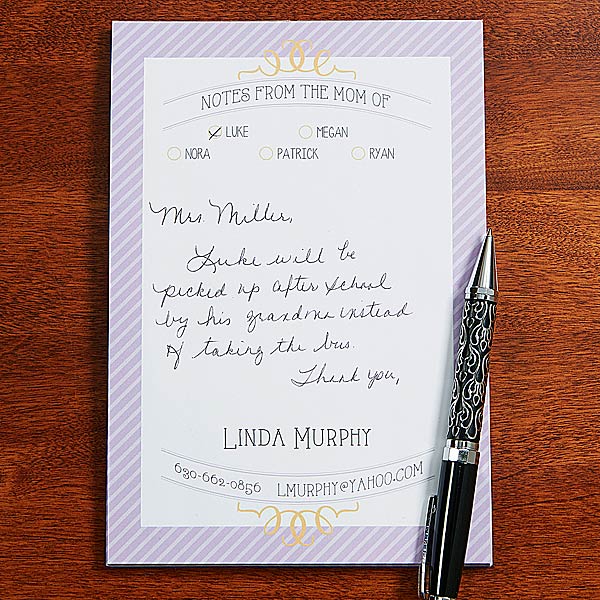 NOTES FROM THE MOM OF
LUKE MEGAN
NORA PATRICK RYAN
Mrs. Miller,
Luke will be
picked up after school
by his grandma instead
of taking the bus.
Thank you,
LINDA MURPHY
630-662-0856 LMURPHY@YAHOO.COM